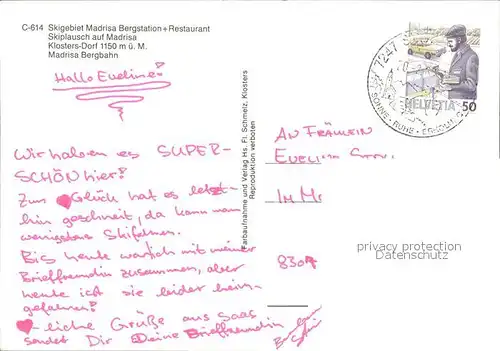 C-614 Skigebiet Madrisa Bergstation+Restaurant
Skiplausch auf Madrisa
Klosters-Dorf 1150 m ü. M.
Madrisa Bergbahn
Hallo Eveline!
Wir haben es SUPER-
SCHÖN hier!
Zum Glück hat es letzt-
hin geschneit, da kann man
wenigstens Skifahren.
Bis heute war ich mit meiner
Brieffreundin zusammen, aber
heute ist sie leider heim-
gefahren!
-liche Grüße aus Saas
sendet Dir Deine Brieffreundin
Farbaufnahme und Verlag Hs. Fl. Schmelz, Klosters
Reproduktion verboten
7247 S
SONNE · RUHE · ERHOLUNG
HELVETIA 50
AN FRÄULEIN
EVELI
IM
8307
privacy protection
Datenschutz